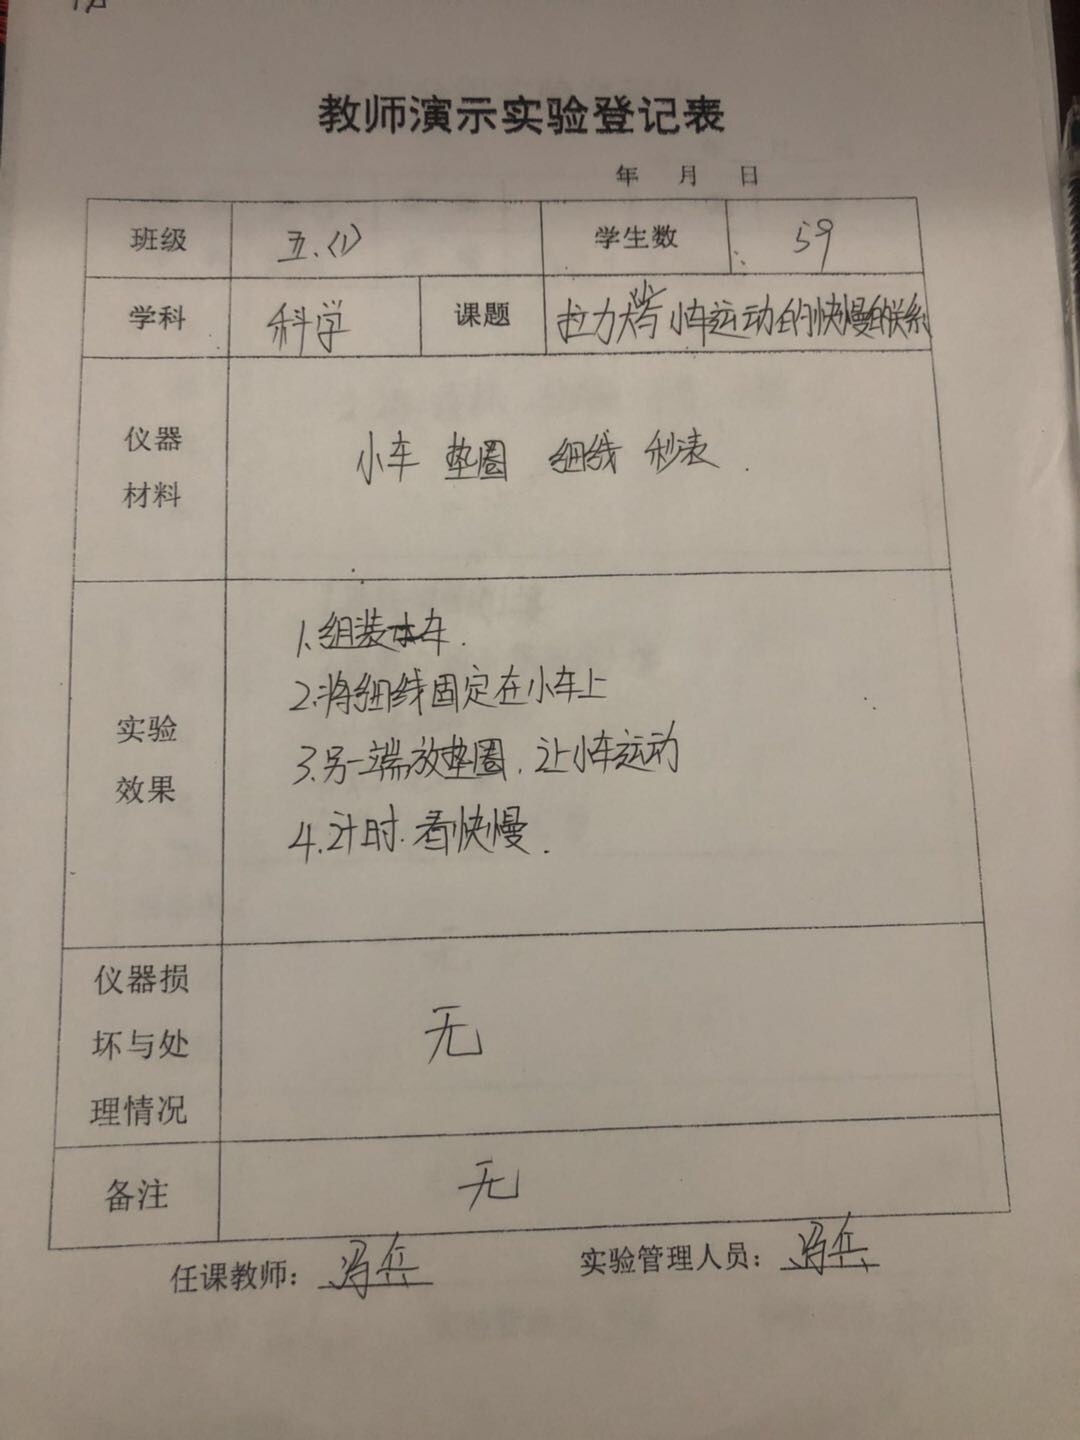 教师演示实验登记表
年 月 日
班级 五.(1) 学生数 59
学科 科学 课题 拉力大小与小车运动的快慢的联系
仪器 材料 小车 垫圈 细线 秒表.
实验 效果
1.组装小车.
2.将细线固定在小车上
3.另一端放垫圈.让小车运动
4.计时.看快慢.
仪器损 坏与处 理情况 无
备注 无
任课教师：冯兵 实验管理人员：冯兵